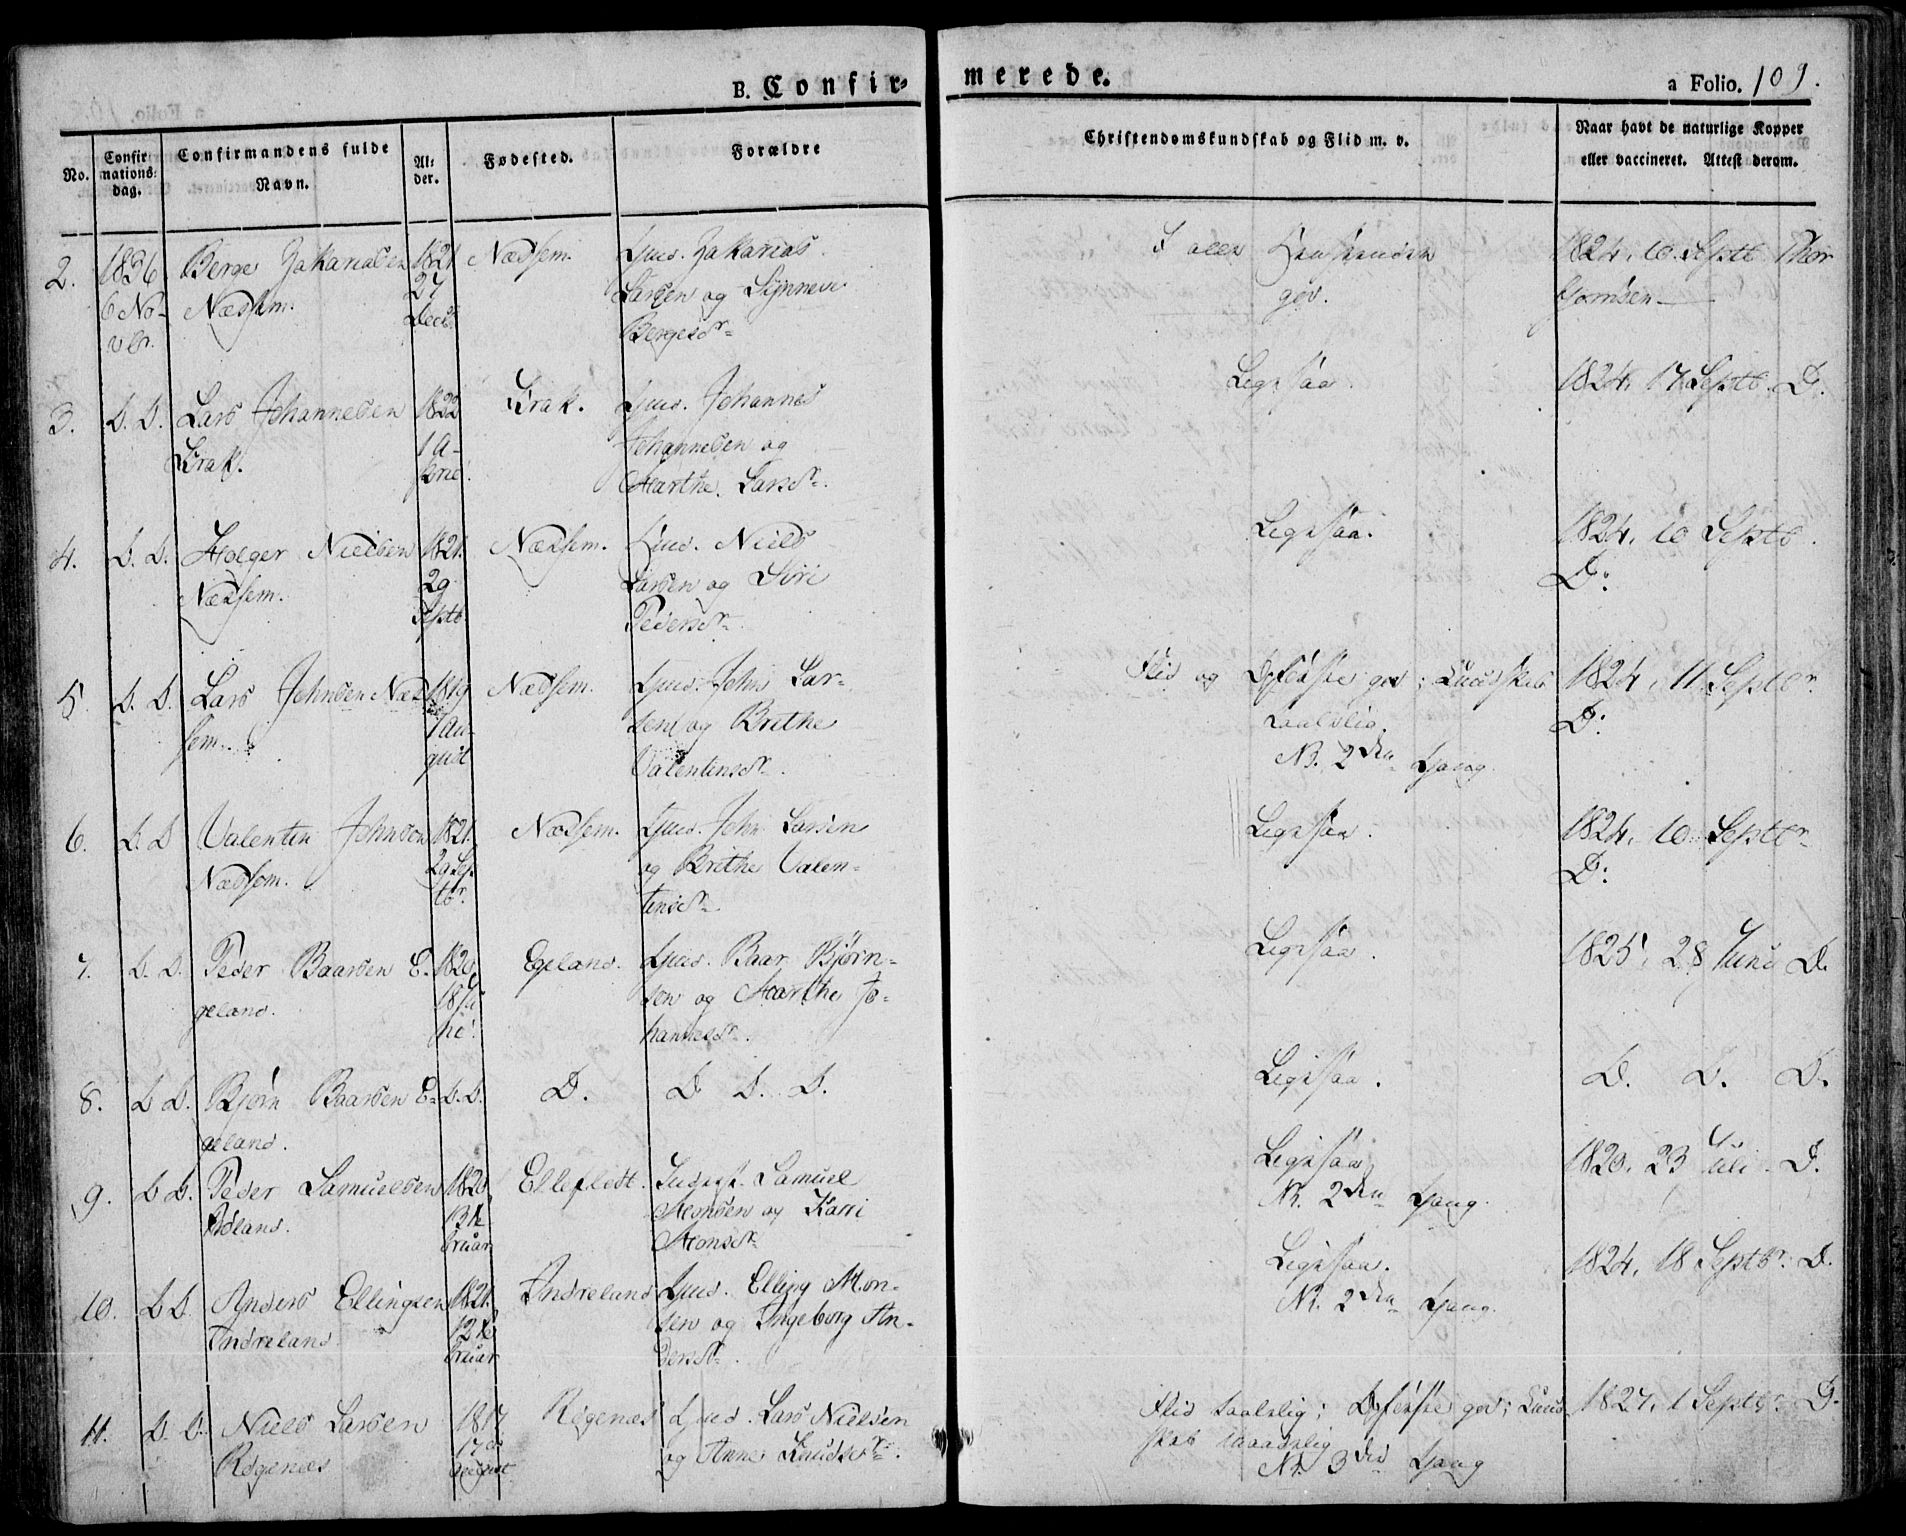 B. Confir-
merede.
a Folio. 109.
No.
Confir
mations-
dag.
Confirmandens fulde
Navn.
Al-
der.
Fødested.
Forældre
Christendomskundskab og Flid m. v.
Naar havt de naturlige Kopper
eller vaccineret. Attest derom.
2.
1836
6 No-
vbr.
Berge Zakariasen
Nædsem.
1821
27
Decbr
Nædsem.
Gmd. Zakarias
Larsen og Synneve
Bergesdr
I alle Henseender
god.
1824, 10 Septb Thor
bjørnsen
3.
D. D.
Lars Johannesen
Krak.
1822
1 A-
pril.
Krak.
Gmd. Johannes
Johannesen og
Marthe Larsdr.
Ligesaa.
1824, 17 Septb. D.
4.
D. D.
Holger Nielsen
Nædsem.
1821.
29
Septb
Nædsem.
Gmd. Niels
Larsen og Siri
Pedersdr
Ligesaa.
1824, 10 Septb.
D:
5.
D. D.
Lars Johnsen Næd
sem.
1819
1 Au-
gust
Nædsem.
Gmd. John Lar-
sen og Brithe
Valentinsdr.
Flid og Opførsel god; Kundskab
taalelig.
NB. 2den Gang.
1824, 11 Septbr.
D:
6.
D. D
Valentin Johnsen
Nædsem.
1821.
29 Sep.
tbr.
Nædsem.
Gmd. John Larsen
og Brithe Valen-
tinsdr
Ligesaa.
1824, 10 Septbr
D:
7.
D. D.
Peder Baardsen E-
geland.
1820
18
Egeland.
Gmd. Baar Bjørn-
sen og Marthe Jo-
hannesdr.
Ligesaa.
1825, 28 Juni D.
8.
D D.
Bjørn Baardsen E-
geland.
D. D.
D.
D. D. D.
Ligesaa.
D. D. D.
9.
D D.
Peder Samuelsen
1820
13 Fe
bruar
Samuel
Monsen og Kari
Monsdr
Ligesaa
NB. 2den Gang.
1820, 23 Juli. D.
10.
D D.
Anders Ellingsen
Indreland
1821.
12 Fe
bruar
Indreland
Gmd. Elling Mon-
sen og Ingeborg An-
dersdr.
Ligesaa.
NB. 2den Gang.
1824, 18 Septbr. D.
11.
D. D.
Niels Larsen
Røgenæs
1817
17de
August
Røgenæs
Gmd. Lars Nielsen
og Anne Knudsdr.
Flid taalelig; Opførsel god; Kund
skab maadelig
NB. 3die Gang
1827, 1 Septbr. D.